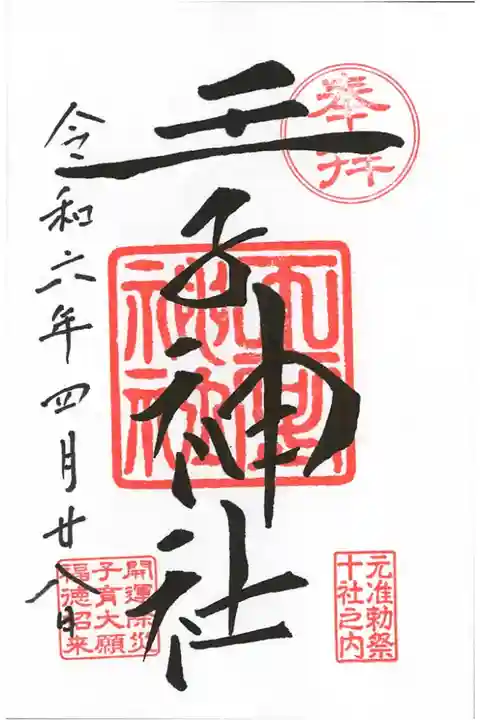 奉拝
元准勅祭
十社之内
王子神社
開運除災
子育大願
福徳招来
令和六年四月廿八日